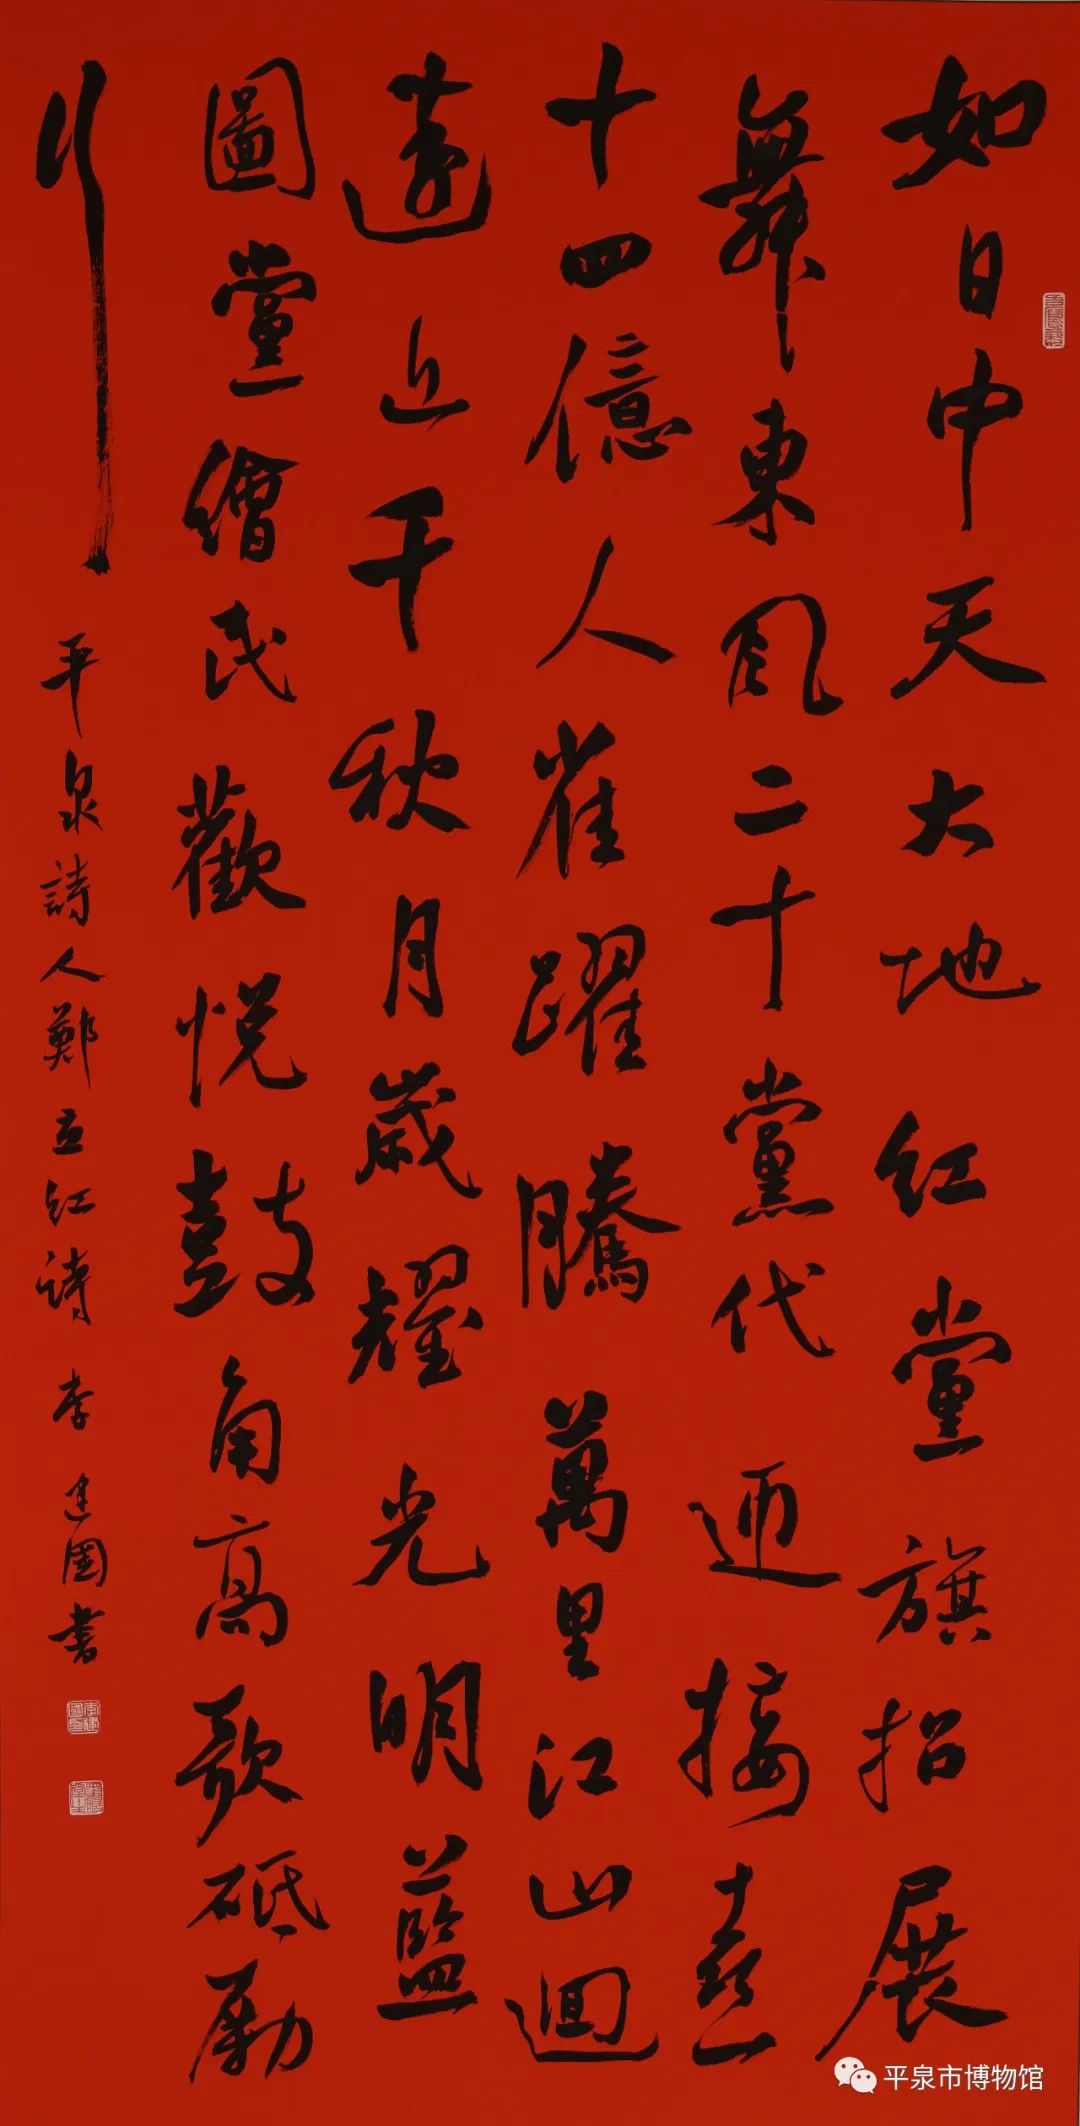 如日中天大地红黨旗招展
舞東風二十黨代迎接喜
十四億人雀躍騰萬里江山迴
遠近千秋月歲耀光明藍
圖黨繪民歡悅鼓角高歌砥勵
行 平泉詩人鄭立红诗 李建國书
平泉市博物馆